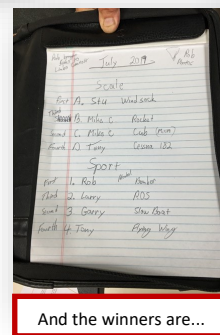 July 2019
Rob
Scale
First A. Stu Windsock
Third B. Mike C Rocket
Second C. Mike C Cub (mini)
Fourth D Tony Cessna 182
Sport
First 1. Rob Bomber
Third 2. Larry AOS
Second 3 Garry Slow Boat
Fourth 4 Tony Wing
And the winners are...